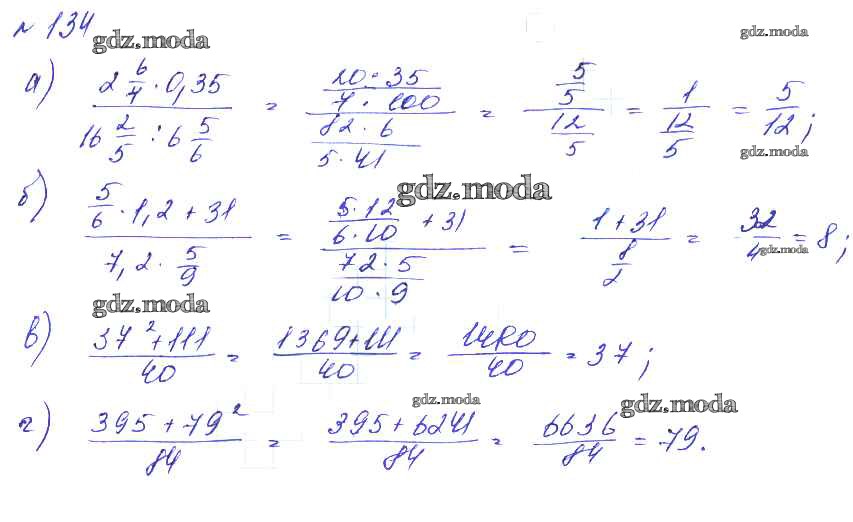 № 134
gdz.moda
gdz.moda
а) (2 6/7 · 0,35)/(16 2/5 : 6 5/6) = ((20 · 35)/(7 · 100))/((82 · 6)/(5 · 41)) = (5/5)/(12/5) = 1/(12/5) = 5/12;
gdz.moda
gdz.moda
б) (5/6 · 1,2 + 31)/(7,2 · 5/9) = ((5 · 12)/(6 · 10) + 31)/((72 · 5)/(10 · 9)) = (1 + 31)/(8/2) = 32/4 = 8;
gdz.moda
gdz.moda
в) (37² + 111)/40 = (1369 + 111)/40 = 1480/40 = 37;
gdz.moda
gdz.moda
г) (395 + 79²)/84 = (395 + 6241)/84 = 6636/84 = 79.